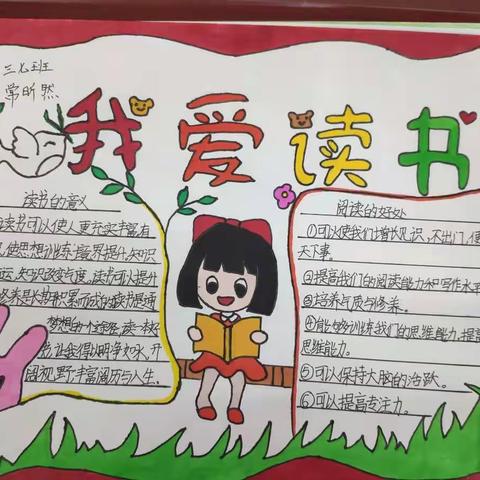 三七班
常昕然
我爱读书
读书的意义
读书可以使人更充实丰富有
思想训练,境界提升,知识
运,知识改变
时积累而成的
梦想的
让我得以明净如水,开
阔视野,丰富阅历与人生。
阅读的好处
①可以使我们增长见识,不出门,便
天下事。
②提高我们的阅读能力和写作水平
③培养气质与修养。
④能够训练我们的思维能力,提高
思维能力。
⑤可以保持大脑的活跃。
⑥可以提高专注力。